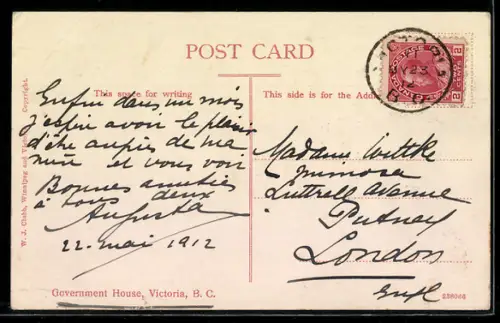 POST CARD
This space for writing
Enfin dans un mois
j'espère avoir le plaisir
d'être auprès de ma
mère et vous voir
Bonnes amitiés
à tous deux
Augusta
22. mai 1912
Government House, Victoria, B. C.
W. J. Clubb, Winnipeg and Copyright.
This side is for the Addr
VICTORIA
B.C.
2 2
Madame Wittke
Mimosa
Luttrell Avenue
Putney
London
Engl